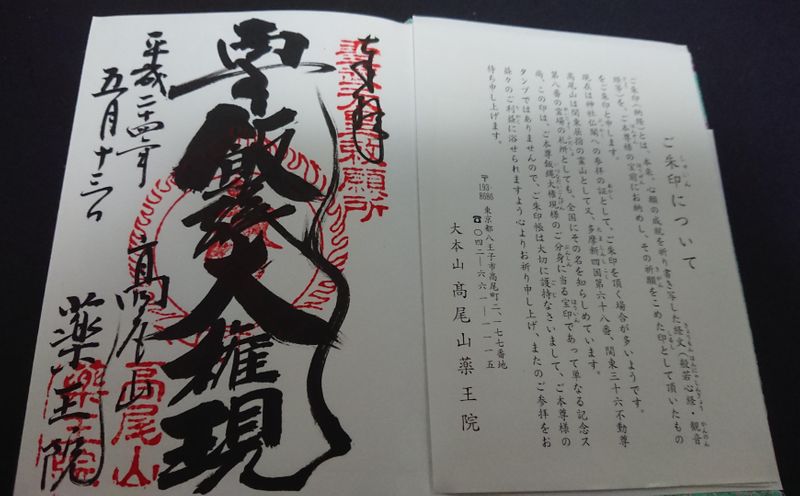 ご朱印について
ご朱印(納経)とは、本来、心願の成就を祈り書き写した経文(般若心経・観音
経等)を、ご本尊様の宝前にお納めし、その祈願をこめた印として頂いたもの
をご朱印と申します。
現在は神社仏閣への参拝の証として、ご朱印を頂く場合が多いようです。
高尾山は関東屈指の霊山として又、多摩新四国第六十八番、関東三十六不動尊
第八番の霊場の札所としても、全国にその名を知らしめています。
尚、この印は、ご本尊飯縄大権現様のご分身に当る宝印であって単なる記念ス
タンプではありませんので、ご朱印帳は大切に護持なさいまして、ご本尊様の
益々のご利益に浴せられますよう心よりお祈り申し上げ、またのご参拝をお
待ち申し上げます。
〒193-8686 東京都八王子市高尾町二、一七七番地
☎〇四二-六六一-一一一五
大本山 髙尾山薬王院
奉拝
聖武天皇勅願所
飯縄大権現
平成二十四年
五月十三日
髙尾山
薬王院
高尾山